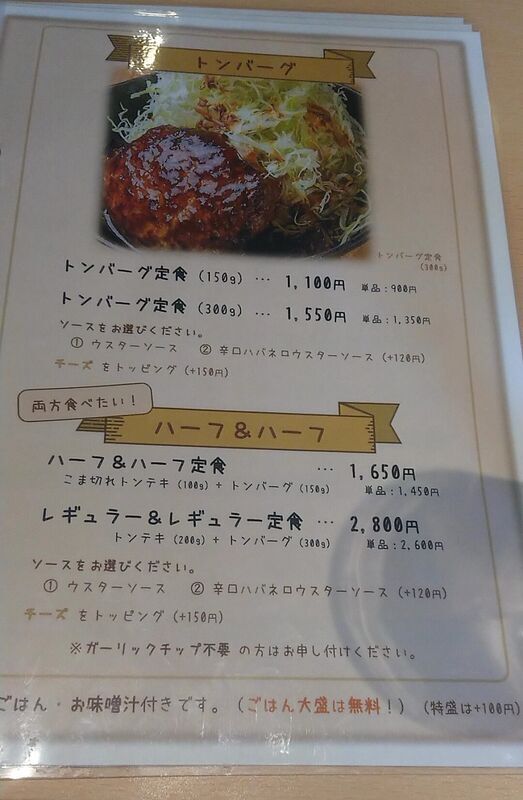 トンバーグ
トンバーグ定食
(300g)
トンバーグ定食 (150g) … 1,100円 単品:900円
トンバーグ定食 (300g) … 1,550円 単品:1,350円
ソースをお選びください。
① ウスターソース ② 辛口ハバネロウスターソース (+120円)
チーズ をトッピング (+150円)
両方食べたい!
ハーフ&ハーフ
ハーフ&ハーフ定食 … 1,650円
こま切れトンテキ (100g) + トンバーグ (150g) 単品:1,450円
レギュラー&レギュラー定食 … 2,800円
トンテキ (200g) + トンバーグ (300g) 単品:2,600円
ソースをお選びください。
① ウスターソース ② 辛口ハバネロウスターソース (+120円)
チーズ をトッピング (+150円)
※ガーリックチップ不要 の方はお申し付けください。
ごはん・お味噌汁付きです。(ごはん大盛は無料!) (特盛は+100円)